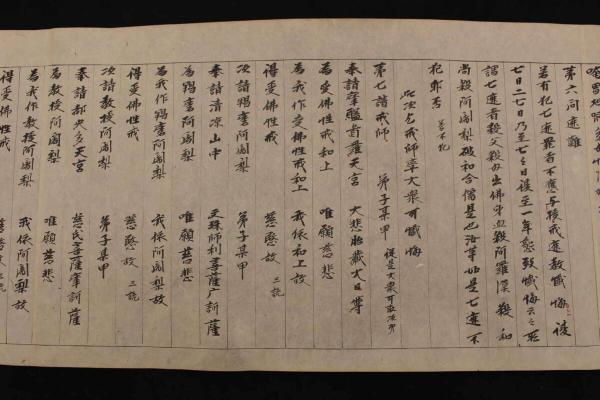 第六問遮難
若有犯七逆罪者不應与授戒遮教懺悔後
七日二七日乃至七々日後至一年慇懃懺悔云々所
謂七逆者殺父殺母出佛身血殺阿羅漢殺和
尚殺阿闍梨破和合僧是也汝等如是七逆不
犯耶否 答不犯
此次名戒師率大衆可懺悔
第七請戒師 弟子某甲
奉請摩醯首羅天宮 大悲胎藏大日尊
為受佛性戒和上 唯願慈悲
為我作受佛性戒和上 我依和上故
得受佛性戒 慈愍故 三說
次請羯磨阿闍梨 弟子某甲
奉請清凉山中 文殊師利菩薩广訶薩
為羯磨阿闍梨 唯願慈悲
為我作羯磨阿闍梨 我依阿闍梨故
得受佛性戒 慈愍故 三說
次請教授阿闍梨 弟子某甲
奉請都史多天宮 慈氏菩薩摩訶薩
為教授阿闍梨 唯願慈悲
為我作教授阿闍梨 我依阿闍梨故
得受佛性戒